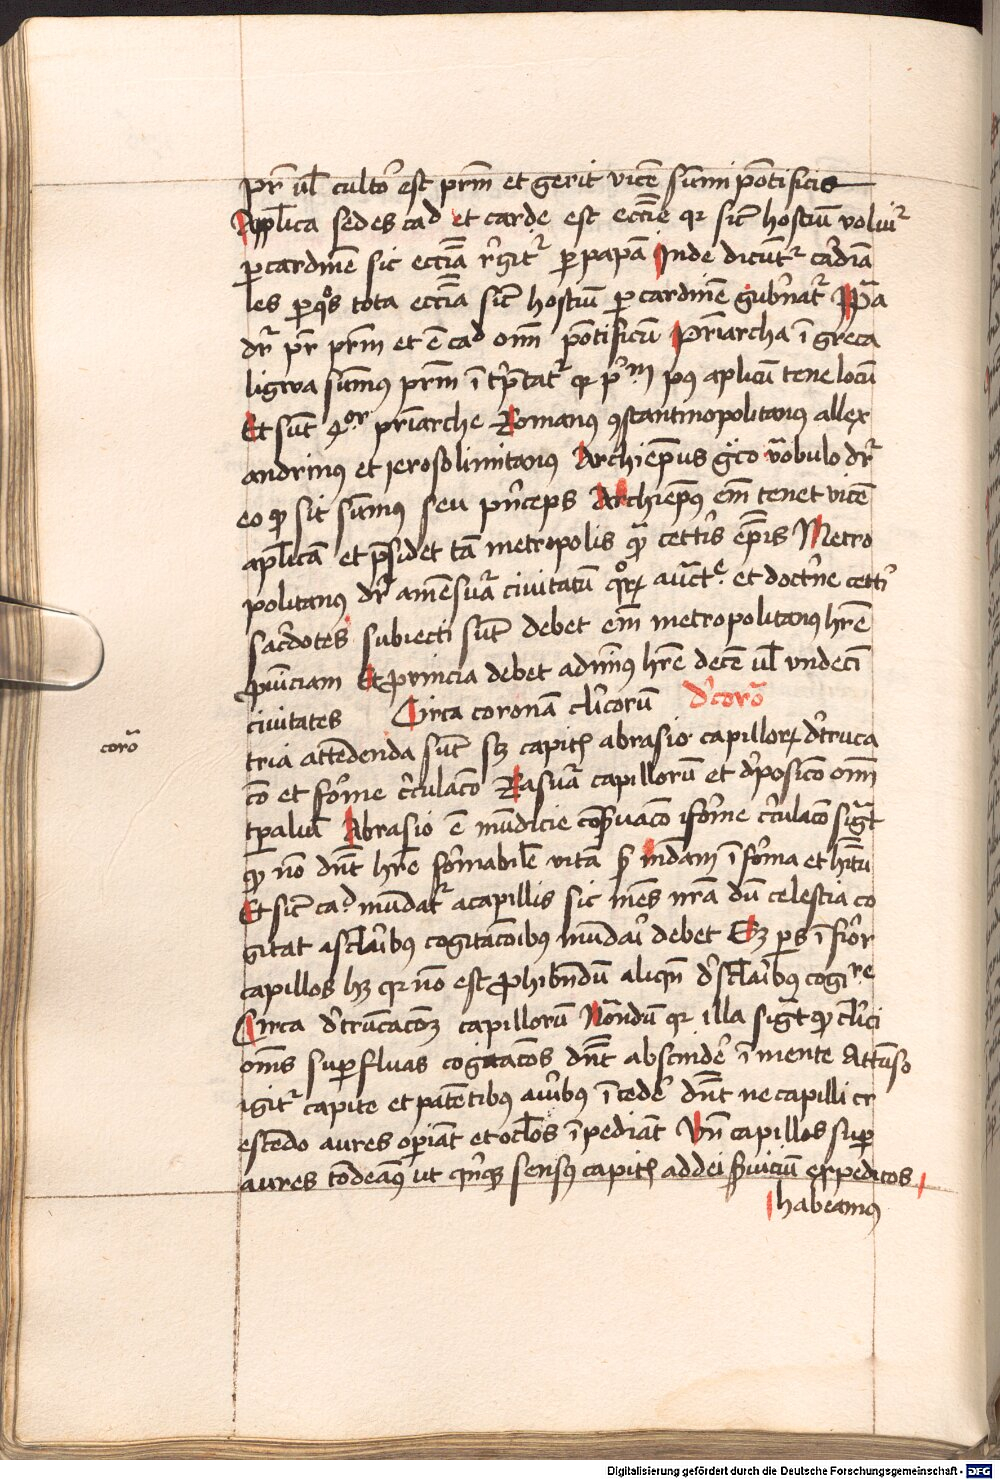 pr̄ ul̄ cultōr est prm̄ et gerit vicē sūmi pōtificis
Apl̄ica sedes cad et carde est eccīe qr sic̄ hostiū voluir̄
p cardinē sic eccīa r̄git᷑ p papā Inde dicūt᷑ cardīa
les p qͦs tota eccīa sic̄ hostiū p cardinē gub̄nat᷑ Ppā
dr̄ pr̄ prm̄ et ē cad om̄ pōtificū Pr̄iarcha ī greca
ligwa sūmus prm̄ ī tp̄tat᷑ qr pͥm pꝯ aplicū tene locū
Et sūt 4or priarche Romanus ꝯstantinopolitanus allex
andrinus et Ierosolimitanus Archiep̄us gͣco vͣobulo dr̄
eo qꝫ sit sūmus seu pͥnceps Archiep̄us em̄ tenet vicē
apl̄icā et psidet tā metropolis qꝫ cett̄is ep̄is Metro
politanus dr̄ amēsurā civitatū qͦrꝝ auctͤ et doctͥne cettͥ
sac̄dotes subiecti sūt debet em̄ metropolitanus hr̄e
ꝓuīciam Et ꝓvincia debet adminꝯ hr̄e decē ul̄ vndeci
civitates Circa coronā cl̄icorū dͤ corōa
corōa
tria attēdenda sūt sꝫ capitꝭ abrasio capillorꝝ dͤtruca
cō et forͫe cͥculacō Rasurͣ capillorū et dͤposicō om̄
tp̄aliū Abrasio ē mūdicie cōsͤuacō īforme cͥculacō sigt̄
qꝫ nō dn̄t hr̄e formabilē vitā sꝫ mdam ī forma et hītu
Et sic̄ cad mūdat᷑ a capillis sic mēs nr̄a dū celestia co
gitat a sclāibus cogitacōibus mūdari debet Eꝫ ps īfior
capillos hꝫ qr nō est ꝓhibndū aliqn̄ dͤ sclāibus cogire
Circa dͤtrūcacōꝫ capillorū Nōndū qr illa sigt̄ qꝫ cl̄ici
om̄is superfluas cogitacōes dn̄t abscindͤe ī mente Attūso
igit᷑ capite et patētibus auribus ītēdͤe dn̄t ne capilli cr
escēdo aures operiāt et oclos īpediāt Vn̄ capillos super
aures tōdeāꝯ ut qͥnqꝫ sensꝯ capitꝭ ad dei sͤvicium expeditos
habeamus
Digitalisierung gefördert durch die Deutsche Forschungsgemeinschaft - DFG